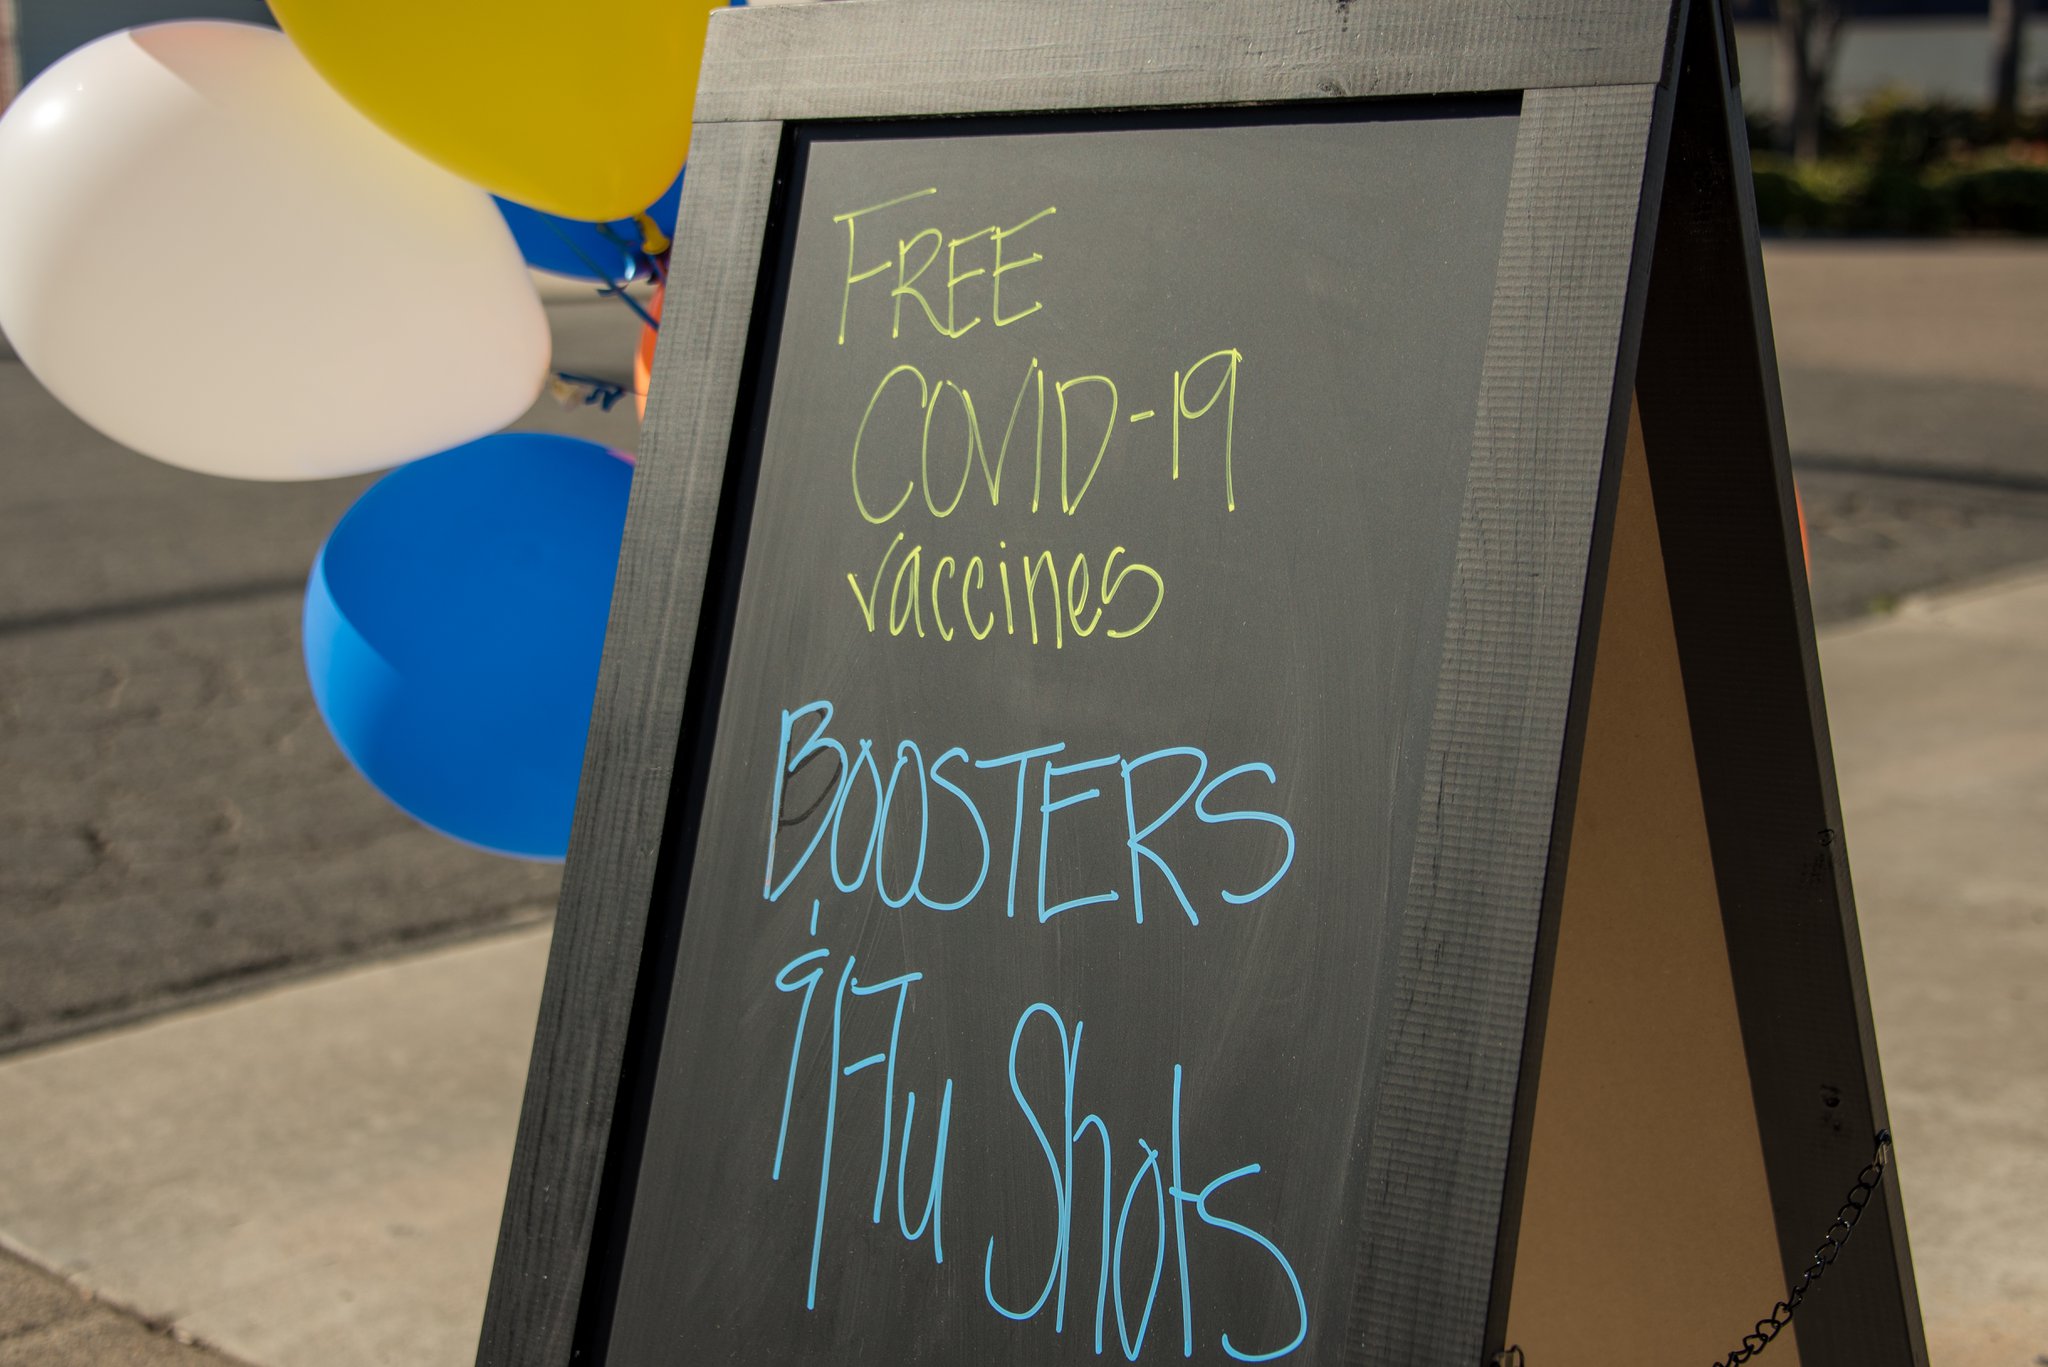 FREE
COVID-19
vaccines
BOOSTERS
& Flu Shots